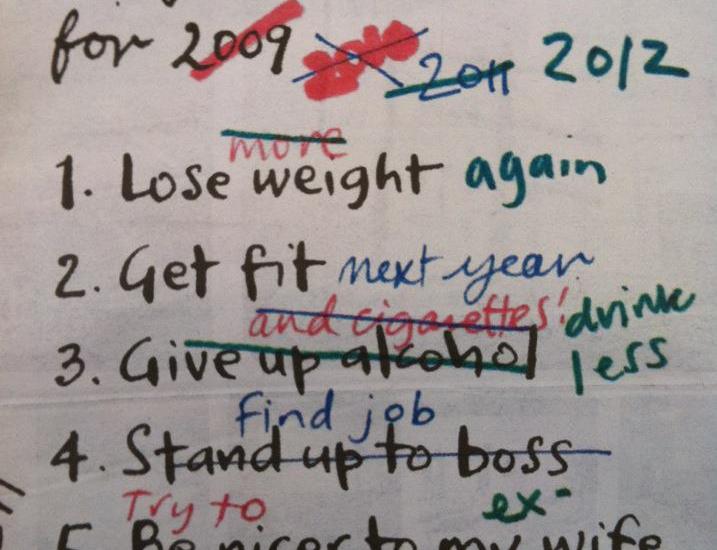 for 2009 2010 2011 2012
more
1. Lose weight again
2. Get fit next year
and cigarettes! drink
3. Give up alcohol less
find job
4. Stand up to boss
Try to ex-
5. Be nicer to my wife